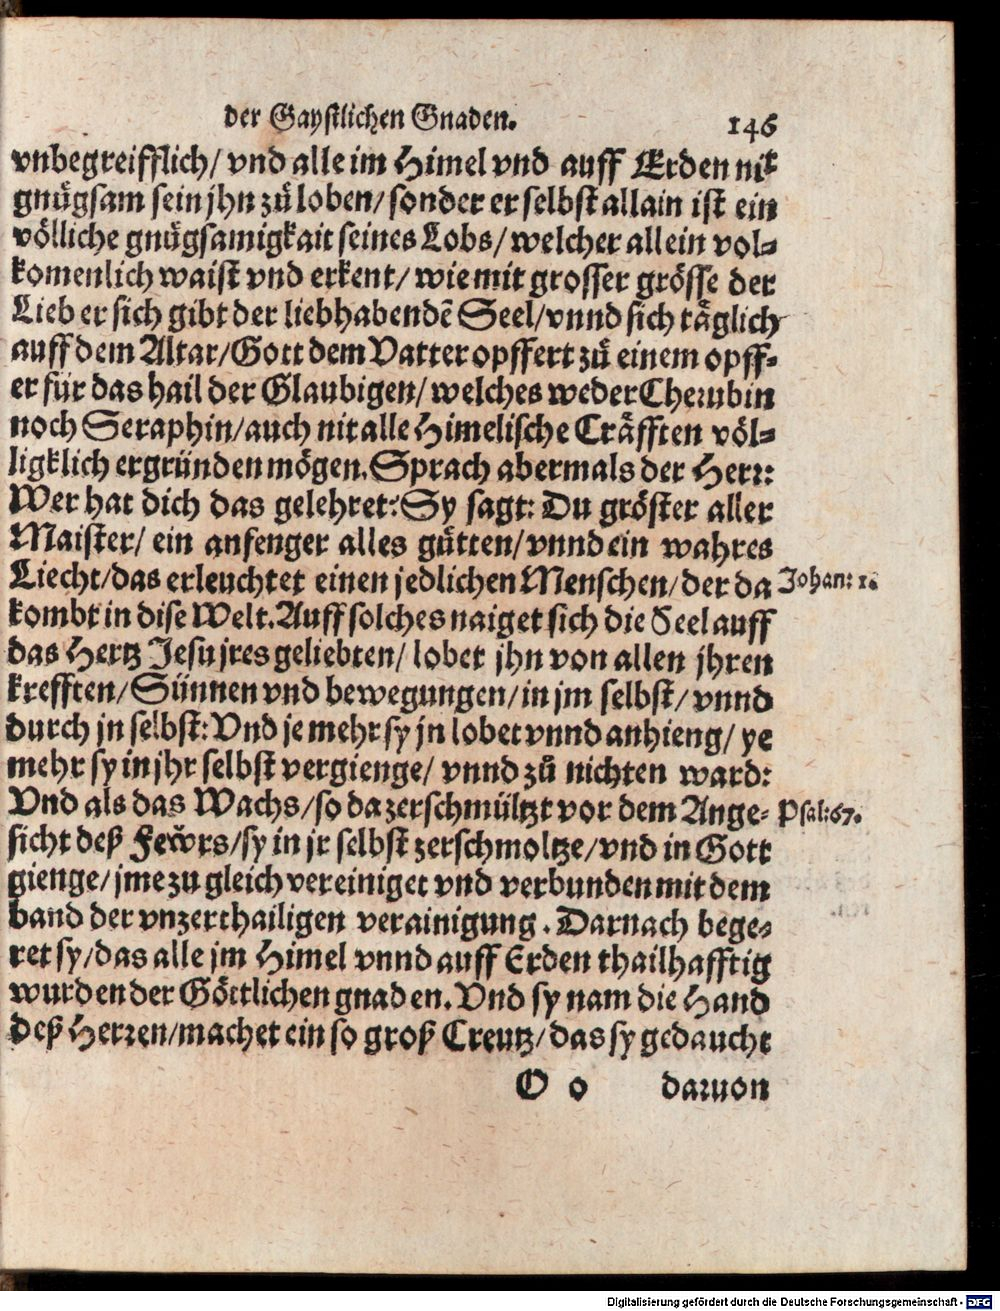 der Gaystlichen Gnaden. 146
vnbegreifflich/ vnd alle im Himel vnd auff Erden nit
gnůgsam sein jhn zů loben/ sonder er selbst allain ist ein
völliche gnůgsamigkait seines Lobs/ welcher allein vol-
komenlich waist vnd erkent/ wie mit grosser grösse der
Lieb er sich gibt der liebhabendē Seel/ vnnd sich täglich
auff dem Altar/ Gott dem Vatter opffert zů einem opff-
er für das hail der Glaubigen/ welches weder Cherubin
noch Seraphin/ auch nit alle Himelische Cräfften völ-
ligklich ergründen mögen. Sprach abermals der Herr:
Wer hat dich das gelehret? Sy sagt: Du gröster aller
Maister/ ein anfenger alles gůtten/ vnnd ein wahres
Liecht/ das erleuchtet einen jedlichen Menschen/ der da Johan: 1.
kombt in dise Welt. Auff solches naiget sich die Seel auff
das Hertz Jesu jres geliebten/ lobet jhn von allen jhren
krefften/ Sünnen vnd bewegungen/ in jm selbst/ vnnd
durch jn selbst: Vnd je mehr sy jn lobet vnnd anhieng/ ye
mehr sy in jhr selbst vergienge/ vnnd zů nichten ward:
Vnd als das Wachs/ so da zerschmültzt vor dem Ange- Psal: 67.
sicht deß Fewrs/ sy in jr selbst zerschmoltze/ vnd in Gott
gienge/ jme zu gleich vereiniget vnd verbunden mit dem
band der vnzerthailigen verainigung. Darnach bege-
ret sy/ das alle jm Himel vnnd auff Erden thailhafftig
wurden der Göttlichen gnaden. Vnd sy nam die Hand
deß Herren/ machet ein so groß Creutz/ das sy gedaucht
O o daruon
Digitalisierung gefördert durch die Deutsche Forschungsgemeinschaft - DFG